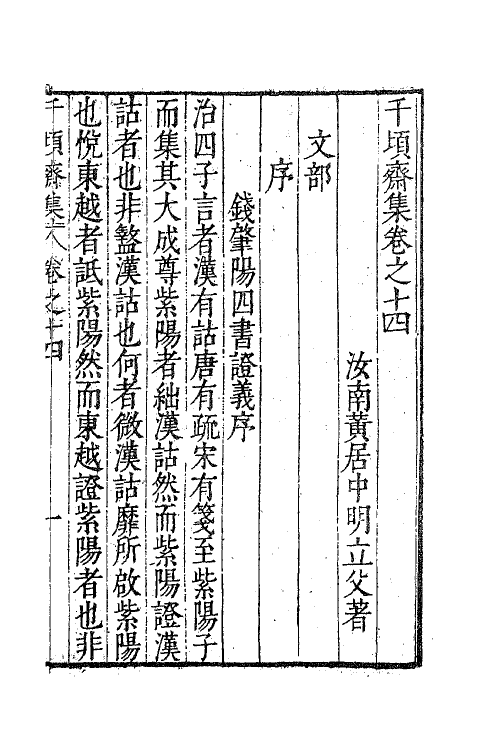 千頃齋集卷之十四
汝南黃居中明立父著
文部
序
錢肇陽四書證義序
治四子言者漢有詁唐有疏宋有箋至紫陽子
而集其大成尊紫陽者絀漢詁然而紫陽證漢
詁者也非盭漢詁也何者微漢詁靡所啟紫陽
也悅東越者詆紫陽然而東越證紫陽者也非
千頃齋集 卷之十四 一